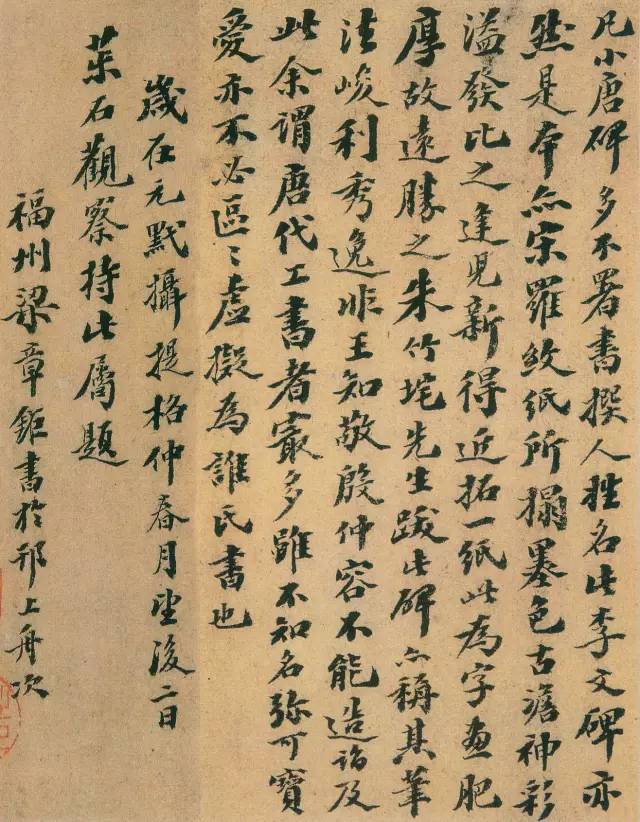 凡小唐碑多不署書撰人姓名此李文碑亦
然是本亦宋羅紋紙所搨墨色古澹神彩
溢發比之逢兒新得近拓一紙此為字畫肥
厚故遠勝之朱竹垞先生跋此碑亦稱其筆
法峻利秀逸非王知敬殷仲容不能造詣及
此余謂唐代工書者最多雖不知名弥可寶
愛亦不必區〻虛擬為誰氏書也
歲在元黓攝提格仲春月望後二日
茉石觀察持此屬題
福州梁章鉅書於邗上舟次